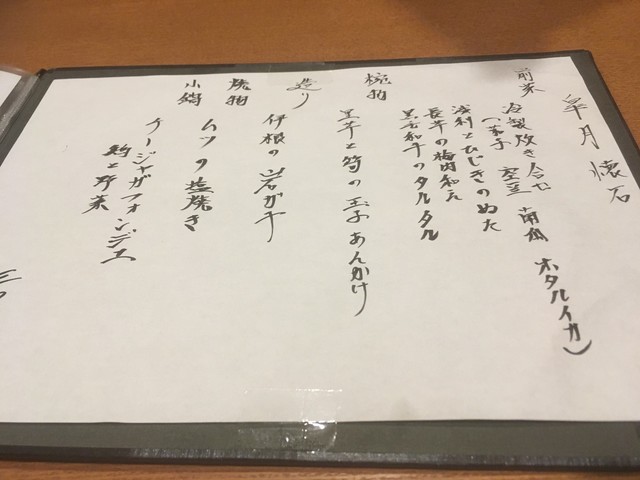 皐月 懐石
前菜
冷製炊き合せ
(茄子 空豆 南瓜 ホタルイカ)
浅利とひじきのぬた
長芋の梅肉和え
黒毛和牛のタルタル
椀物
里芋と筍の玉子あんかけ
造り
伊根の岩ガキ
焼物
ムツの塩焼き
小鍋
チージャガフォンデュ
鶏と野菜